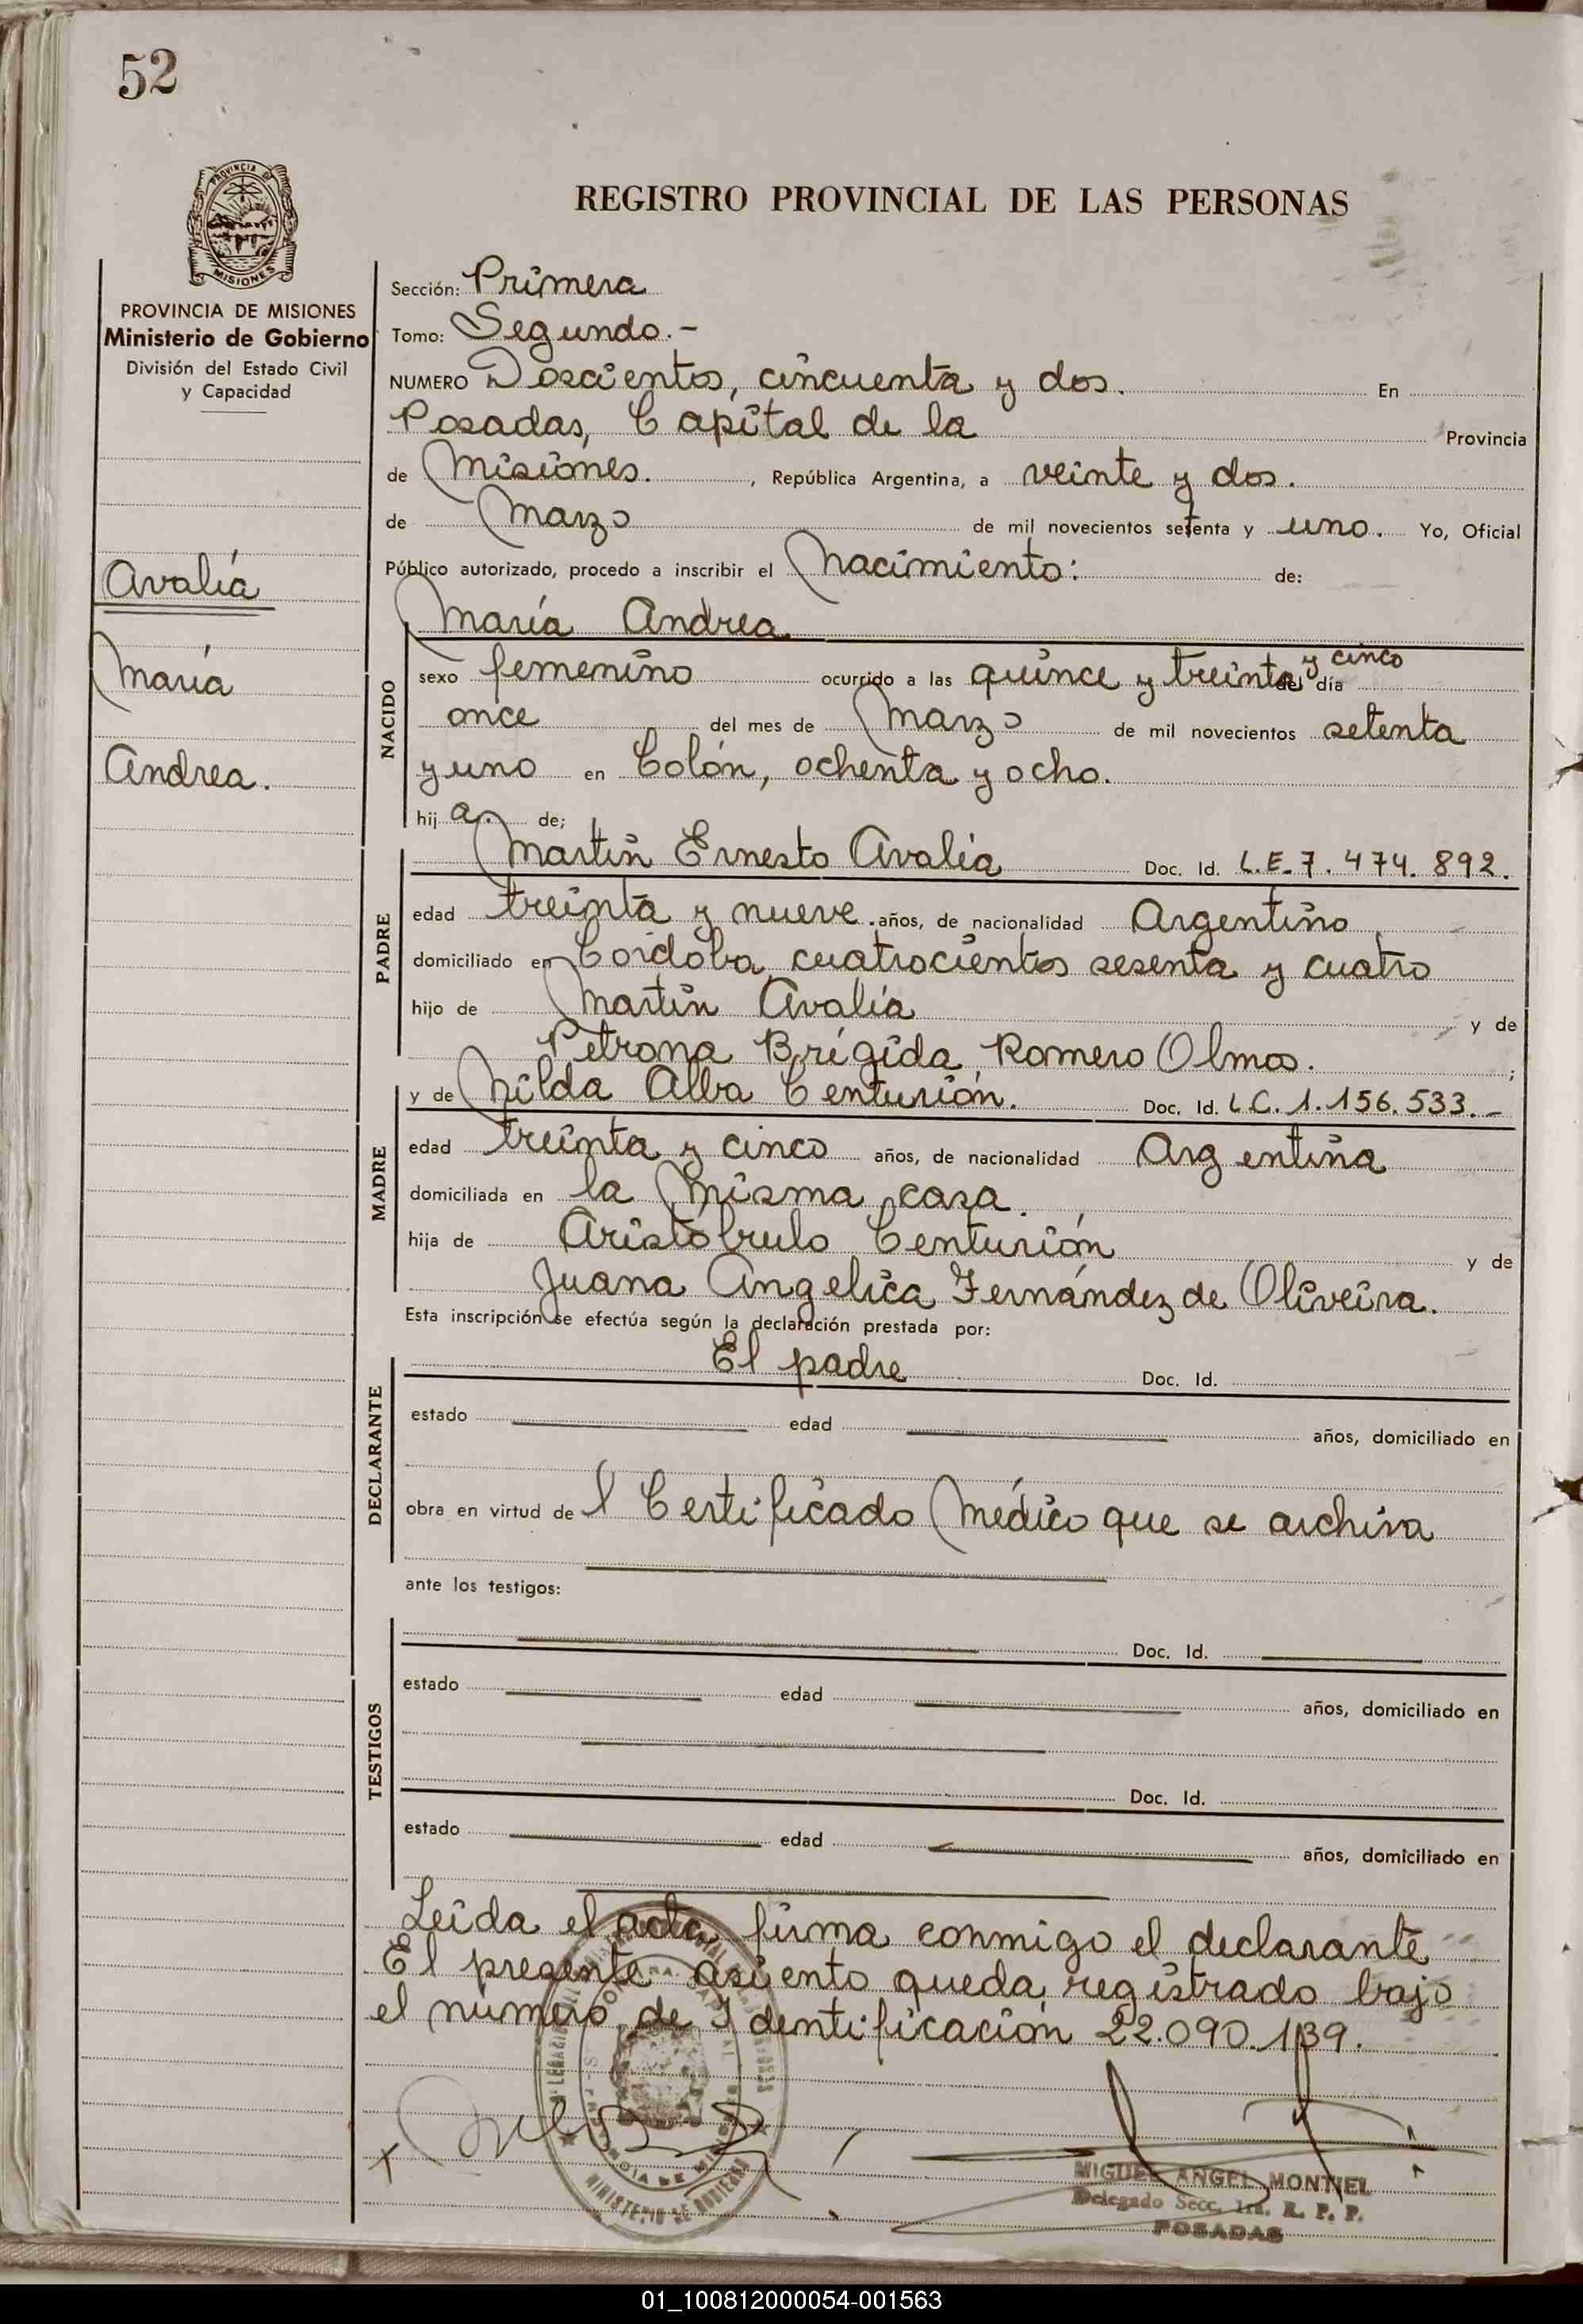 52
PROVINCIA DE
MISIONES
REGISTRO PROVINCIAL DE LAS PERSONAS
PROVINCIA DE MISIONES
Ministerio de Gobierno
División del Estado Civil
y Capacidad
Avalía
María
Andrea.
Sección: Primera
Tomo: Segundo.-
NUMERO Doscientos, cincuenta y dos. En
Posadas, Capital de la Provincia
de Misiones. , República Argentina, a veinte y dos.
de Marzo de mil novecientos setenta y uno. Yo, Oficial
Público autorizado, procedo a inscribir el Nacimiento: de:
María Andrea
NACIDO
sexo femenino ocurrido a las quince y treinta y cinco del día
once del mes de Marzo de mil novecientos setenta
y uno en Colón, ochenta y ocho.
hij a. de;
PADRE
Martín Ernesto Avalía Doc. Id. L.E.7.474.892.
edad treinta y nueve. años, de nacionalidad Argentino
domiciliado en Córdoba cuatrocientos sesenta y cuatro
hijo de Martín Avalía y de
Petrona Brígida Romero Olmos. ;
MADRE
y de Nilda Alba Centurión. Doc. Id. L.C.1.156.533.-
edad treinta y cinco años, de nacionalidad Argentina
domiciliada en la Misma casa.
hija de Aristóbulo Centurión y de
Juana Angelica Fernández de Oliveira.
Esta inscripción se efectúa según la declaración prestada por:
DECLARANTE
El padre Doc. Id.
estado edad años, domiciliado en
obra en virtud de l Certificado Médico que se archiva
ante los testigos:
TESTIGOS
Doc. Id.
estado edad años, domiciliado en
Doc. Id.
estado edad años, domiciliado en
Leída el acta, firma conmigo el declarante
El presente asiento queda registrado bajo
el número de Identificación 22.090.139.
MINISTERIO DE GOBIERNO
MIGUEL ANGEL MONTIEL
Delegado Secc. 1ra. R. P. P.
POSADAS
01_100812000054-001563